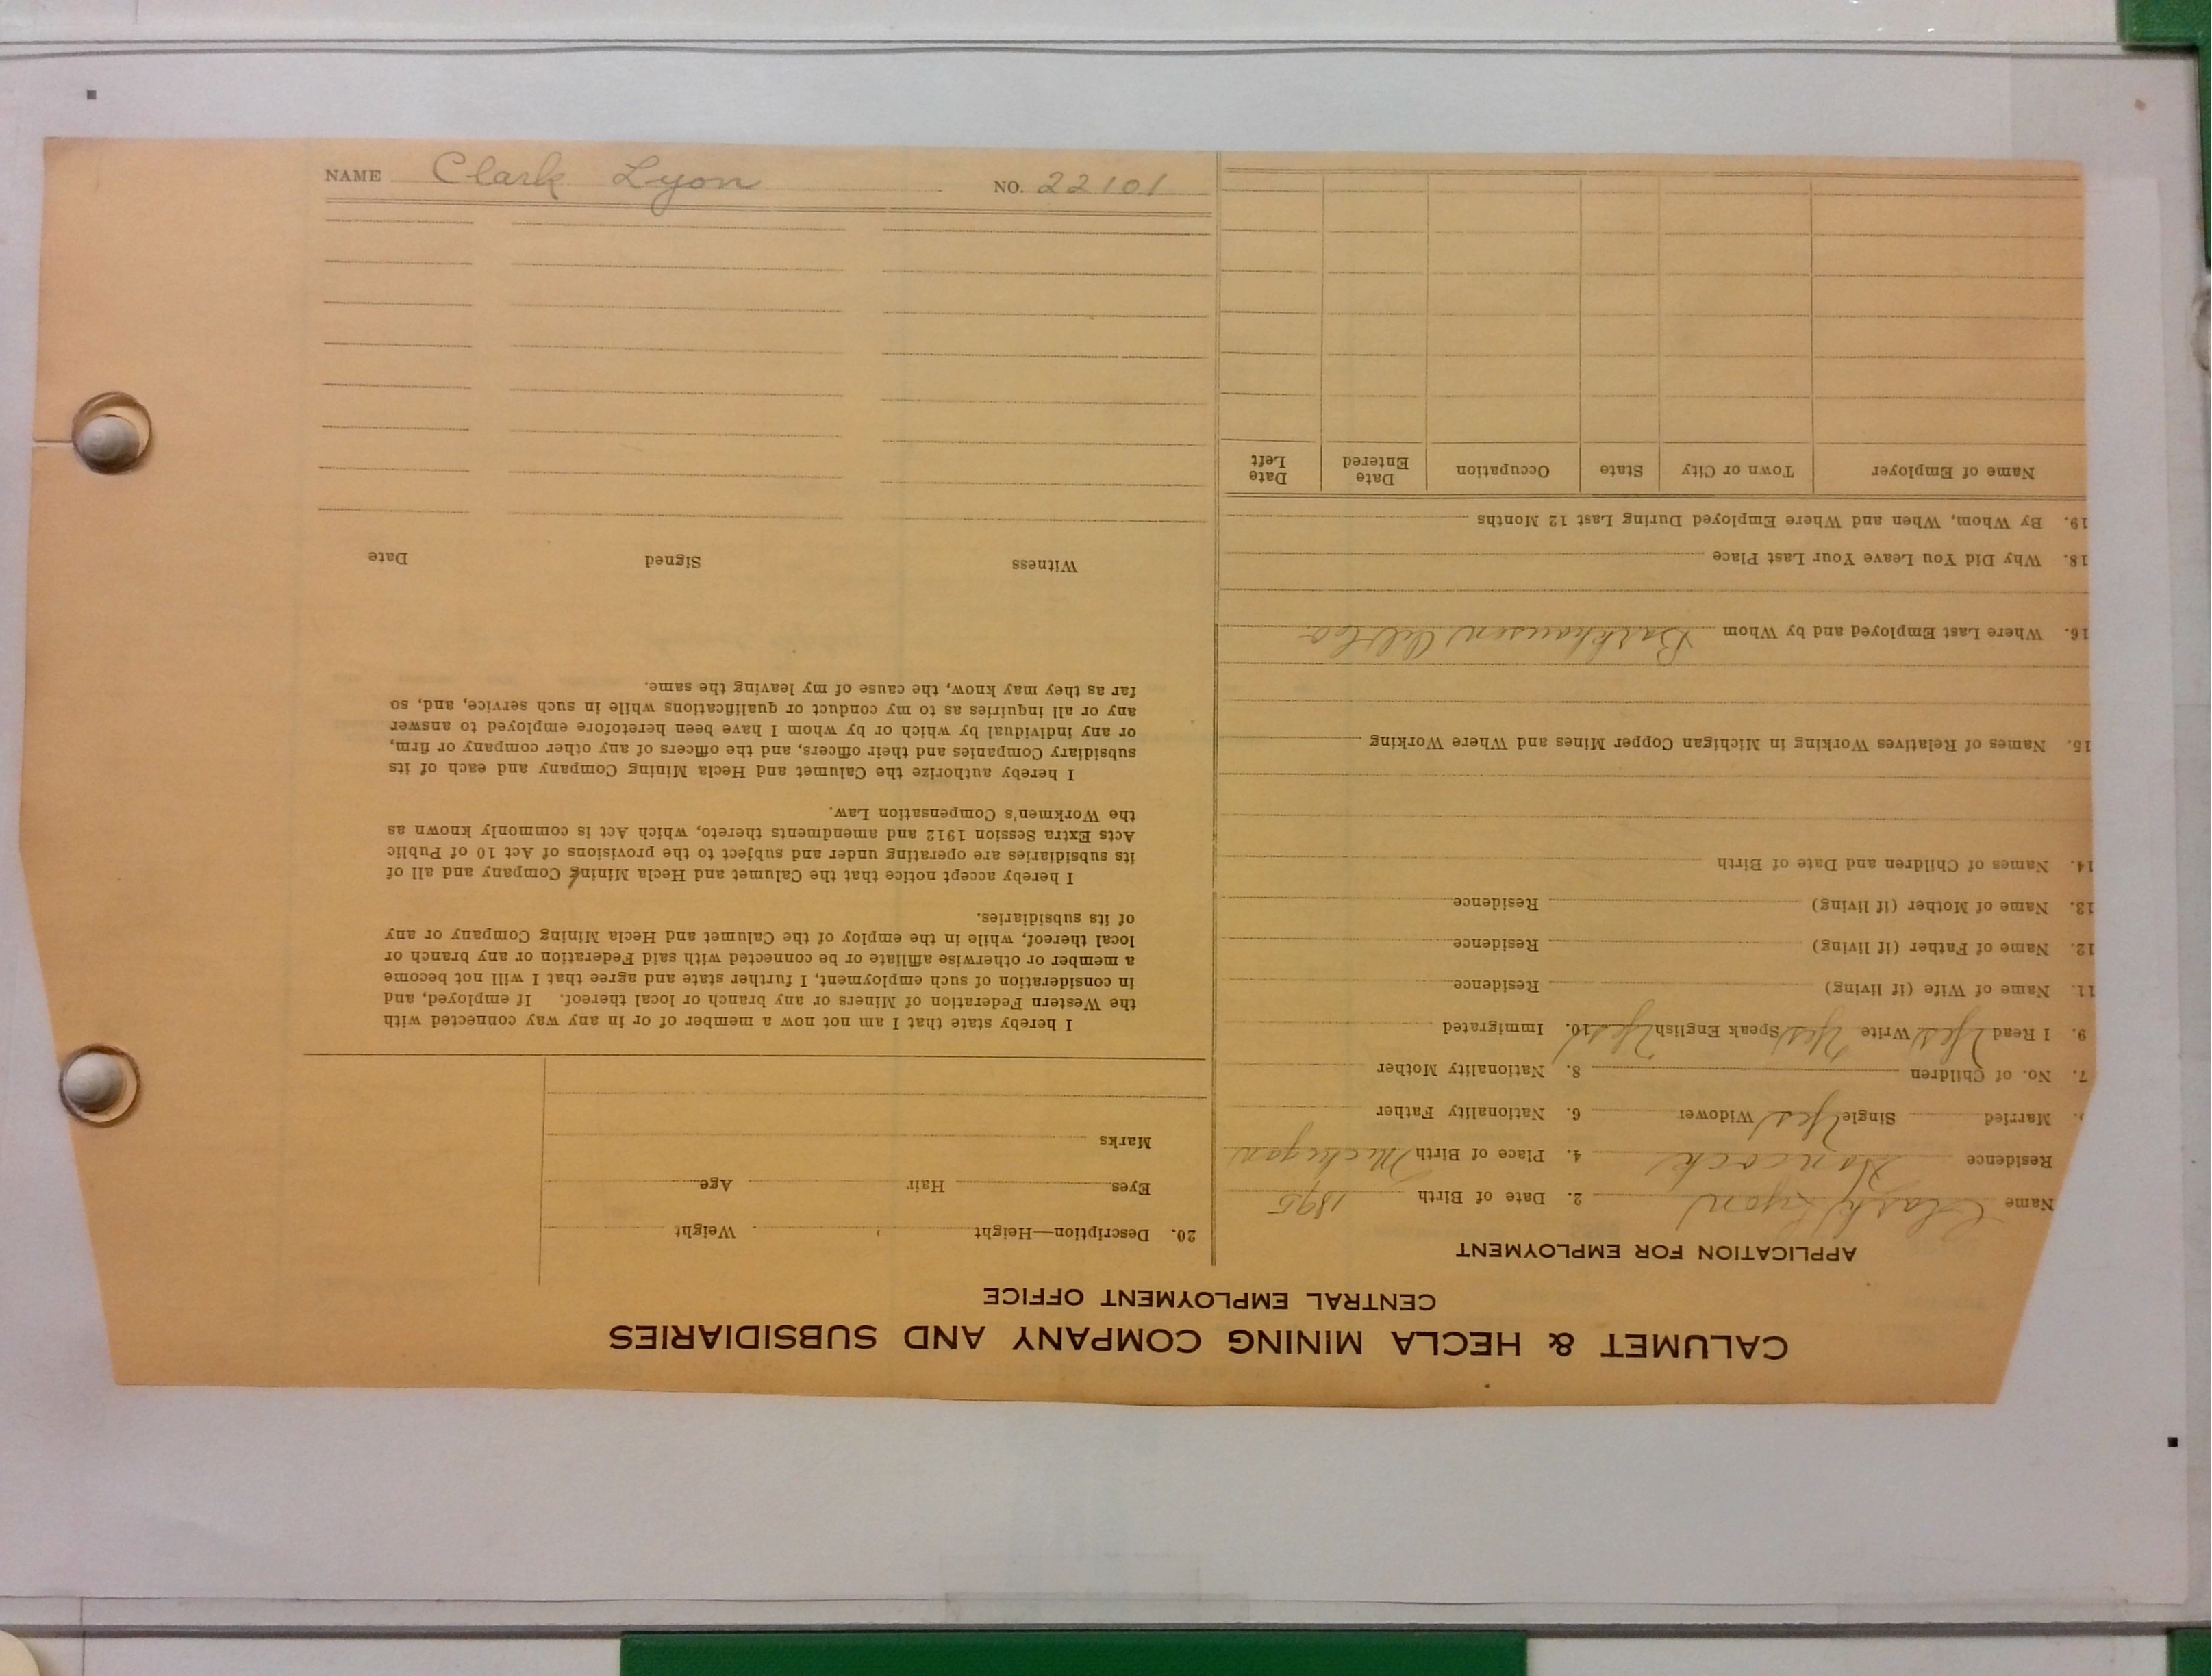 NAME Clark Lyon NO. 22101
CALUMET & HECLA MINING COMPANY AND SUBSIDIARIES
CENTRAL EMPLOYMENT OFFICE
APPLICATION FOR EMPLOYMENT
Name Clark Lyon 2. Date of Birth 1895
Residence Hancock 4. Place of Birth Michigan
Married Single Yes Widower 6. Nationality Father
7. No. of Children 8. Nationality Mother
9. I Read Yes Write Yes Speak English Yes 10. Immigrated
11. Name of Wife (if living) Residence
12. Name of Father (if living) Residence
13. Name of Mother (if living) Residence
14. Names of Children and Date of Birth
15. Names of Relatives Working in Michigan Copper Mines and Where Working
16. Where Last Employed and by Whom Barkhausen Oil Co
18. Why Did You Leave Your Last Place
19. By Whom, When and Where Employed During Last 12 Months
Name of Employer Town or City State Occupation Date Entered Date Left
20. Description—Height Weight
Eyes Hair Age
Marks
I hereby state that I am not now a member of or in any way connected with
the Western Federation of Miners or any branch or local thereof. If employed, and
in consideration of such employment, I further state and agree that I will not become
a member or otherwise affiliate or be connected with said Federation or any branch or
local thereof, while in the employ of the Calumet and Hecla Mining Company or any
of its subsidiaries.
I hereby accept notice that the Calumet and Hecla Mining Company and all of
its subsidiaries are operating under and subject to the provisions of Act 10 of Public
Acts Extra Session 1912 and amendments thereto, which Act is commonly known as
the Workmen's Compensation Law.
I hereby authorize the Calumet and Hecla Mining Company and each of its
subsidiary Companies and their officers, and the officers of any other company or firm,
or any individual by which or by whom I have been heretofore employed to answer
any or all inquiries as to my conduct or qualifications while in such service, and, so
far as they may know, the cause of my leaving the same.
Witness Signed Date